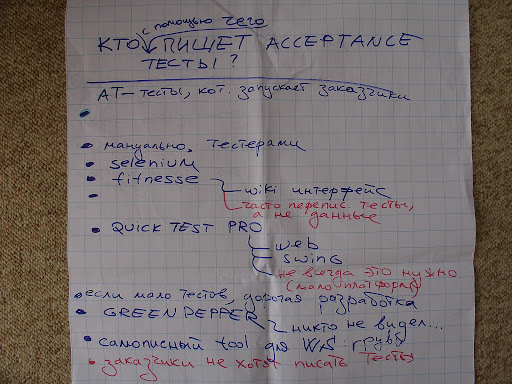 с помощью чего
КТО ПИШЕТ ACCEPTANCE
ТЕСТЫ?
АТ – тесты, кот. запускает заказчики
• мануально, тестерами
• selenium
• fitnesse
wiki интерфейс
часто перепис. тесты,
а не данные
• QUICK TEST PRO
web
swing
не всегда это нужно
(мало платформ)
• если мало тестов, дорогая разработка
• GREEN PEPPER
никто не видел...
• самописный tool для WS: груви
• заказчики не хотят писать тесты